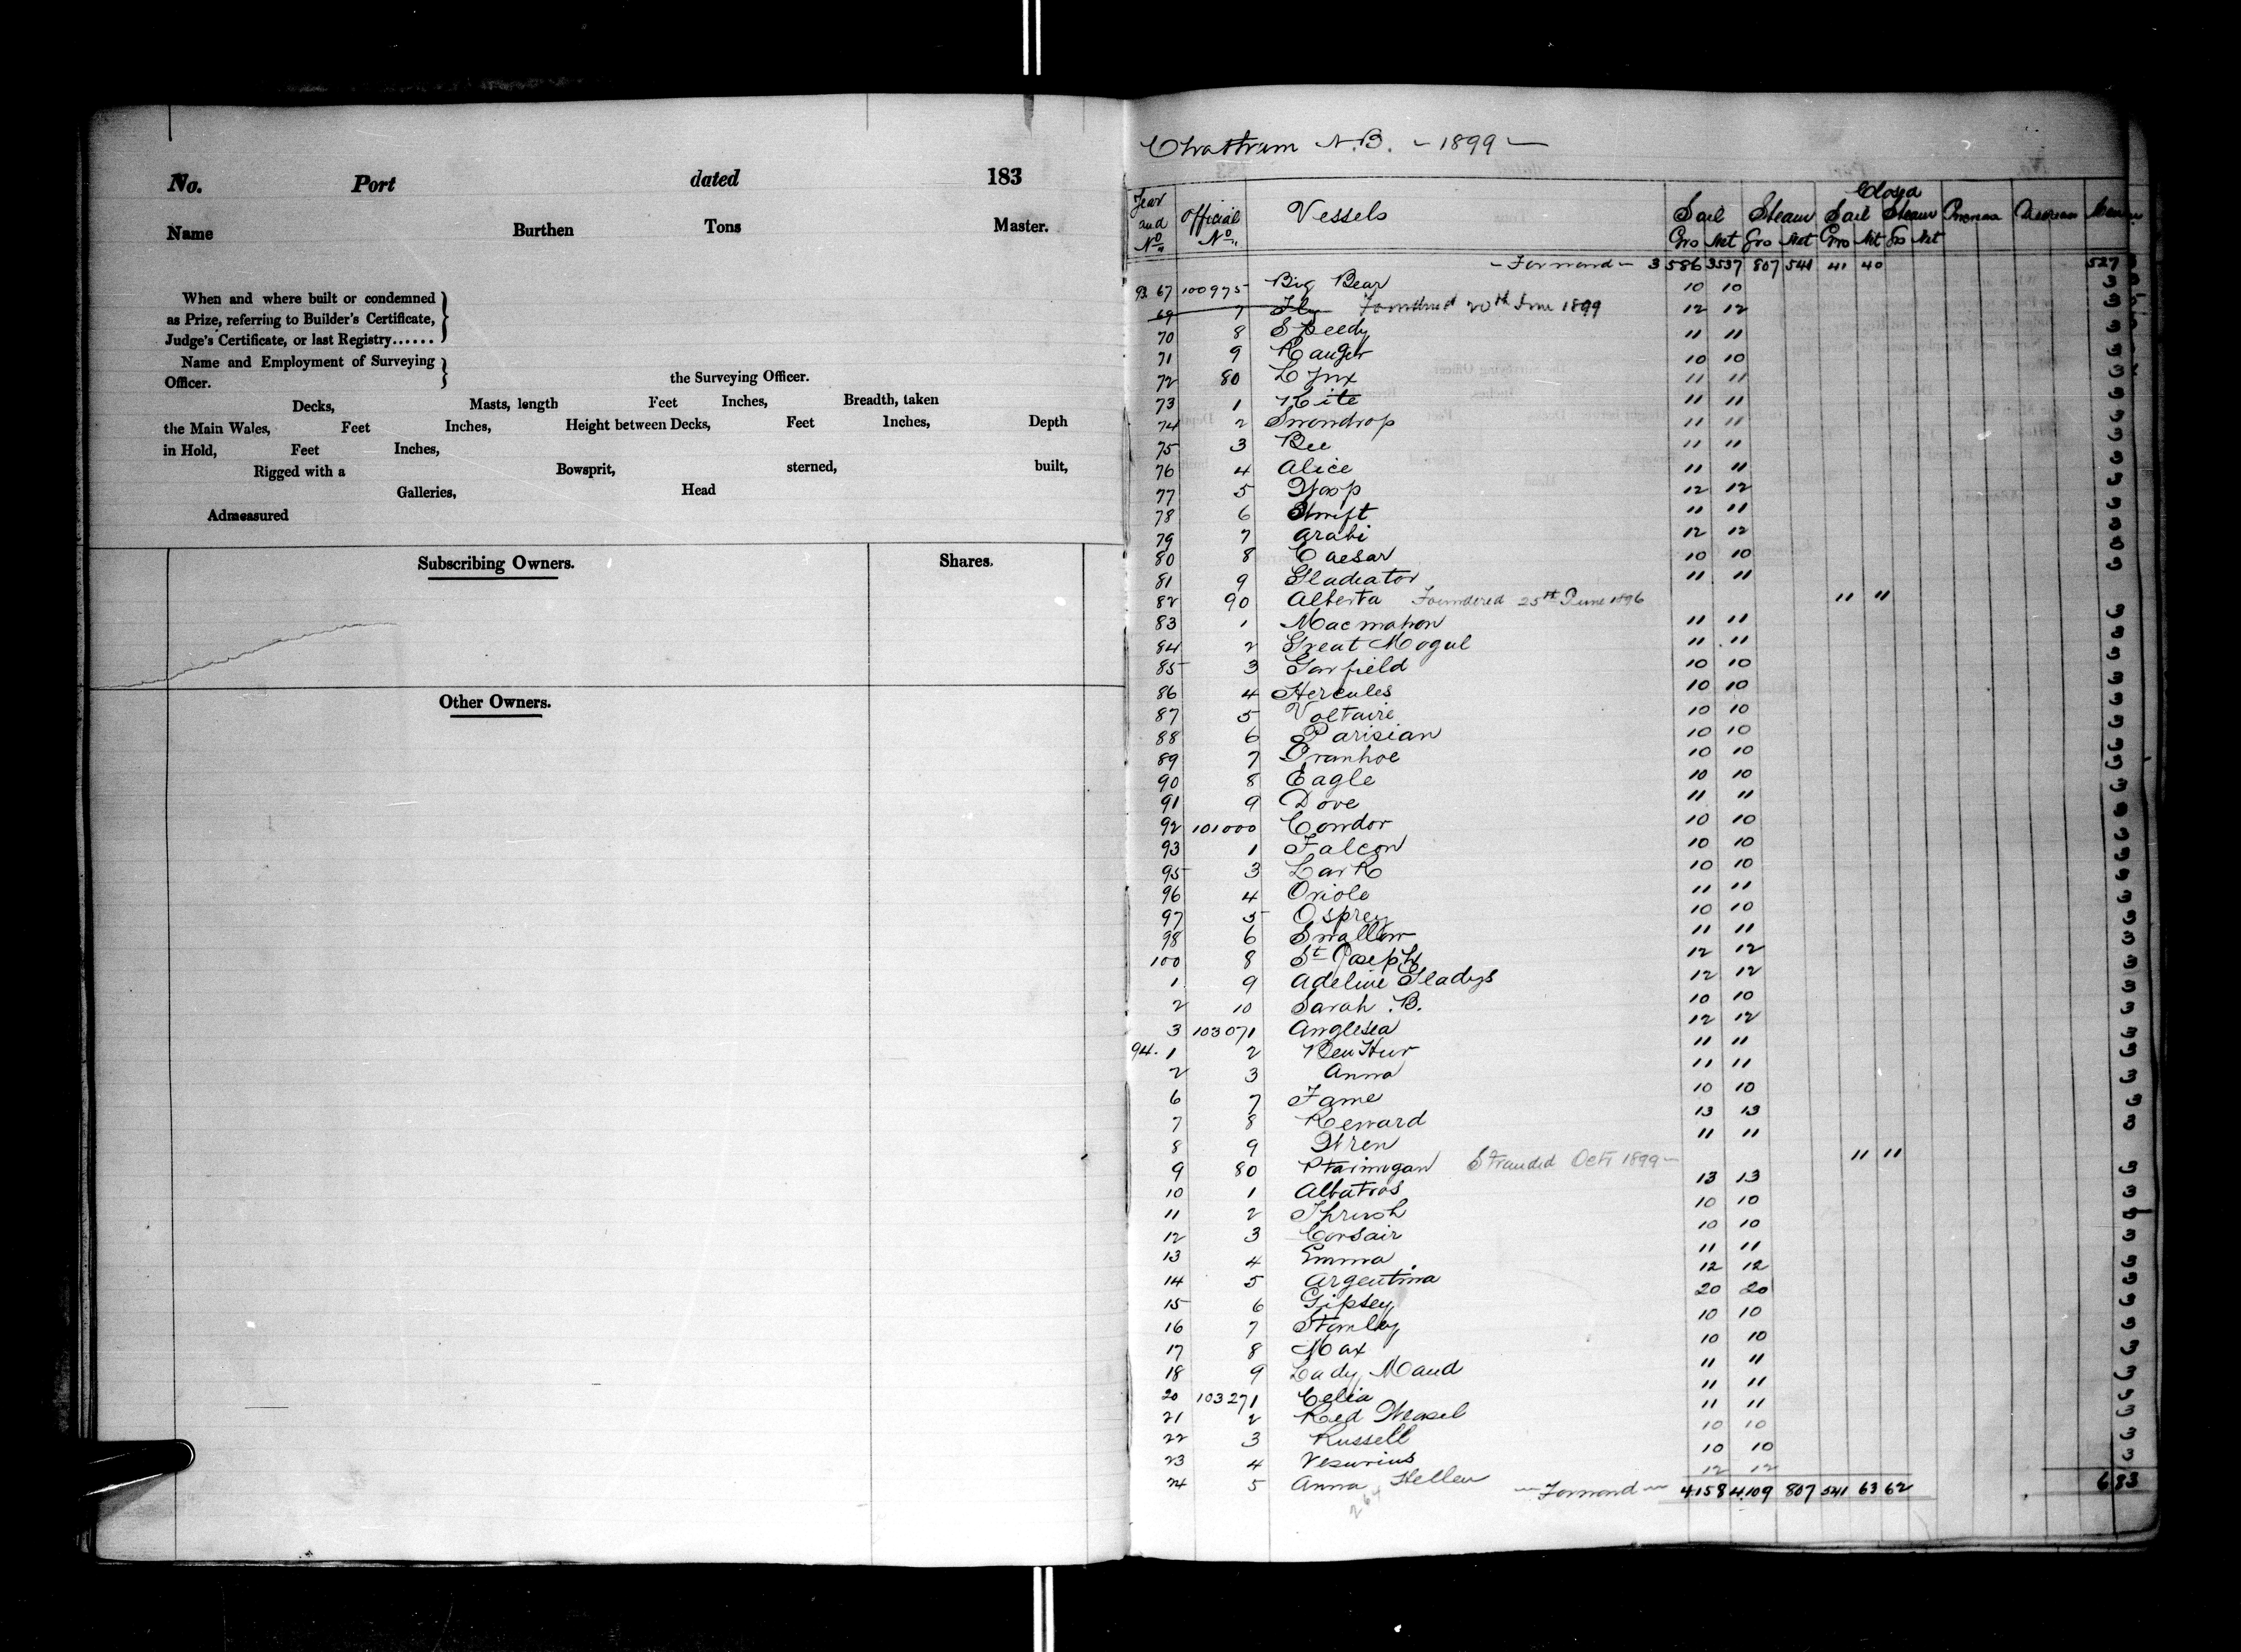 No. Port dated 183
Name Burthen Tons Master.
When and where built or condemned
as Prize, referring to Builder's Certificate,
Judge's Certificate, or last Registry......
Name and Employment of Surveying
Officer. the Surveying Officer.
Decks, Masts, length Feet Inches, Breadth, taken
the Main Wales, Feet Inches, Height between Decks, Feet Inches, Depth
in Hold, Feet Inches,
Rigged with a Bowsprit, sterned, built,
Galleries, Head
Admeasured
Subscribing Owners. Shares.
Other Owners.
Chatham N.B. - 1899 -
Closed
Year and No. Official No. Vessels Sail Steam Sail Steam
Gro Net Gro Net Gro Net Gro Net
- Forward - 3586 3537 807 541 41 40 527
93. 67 100975 Big Bear 10 10 3
69 7 Fly Foundered 20th June 1899 12 12 3
70 8 Speedy 11 11 3
71 9 Ranger 10 10 3
72 80 Lynx 11 11 3
73 1 Kite 11 11 3
74 2 Snowdrop 11 11 3
75 3 Bee 11 11 3
76 4 Alice 11 11 3
77 5 Wasp 12 12 3
78 6 Swift 11 11 3
79 7 Arabi 12 12 3
80 8 Caesar 10 10 3
81 9 Gladiator 11 11 3
82 90 Alberta Foundered 25th June 1896 11 11
83 1 Macmahon 11 11 3
84 2 Great Mogul 11 11 3
85 3 Garfield 10 10 3
86 4 Hercules 10 10 3
87 5 Voltaire 10 10 3
88 6 Parisian 10 10 3
89 7 Ivanhoe 10 10 3
90 8 Eagle 10 10 3
91 9 Dove 11 11 3
92 101000 Condor 10 10 3
93 1 Falcon 10 10 3
95 3 Lark 10 10 3
96 4 Oriole 11 11 3
97 5 Osprey 10 10 3
98 6 Swallow 11 11 3
100 8 St Joseph 12 12 3
1 9 Adeline Gladys 12 12 3
2 10 Sarah B. 10 10 3
3 103071 Anglesea 12 12 3
94. 1 2 Ben Hur 11 11 3
2 3 Anna 11 11 3
6 7 Fame 10 10 3
7 8 Reward 13 13 3
8 9 Wren 11 11 3
9 80 Ptarmigan Stranded Oct 1899 - 11 11
10 1 Albatros 13 13 3
11 2 Thrush 10 10 3
12 3 Corsair 10 10 3
13 4 Emma 11 11 3
14 5 Argentina 12 12 3
15 6 Gipsey 20 20 3
16 7 Stanley 10 10 3
17 8 Max 10 10 3
18 9 Lady Maud 11 11 3
20 103271 Celia 11 11 3
21 2 Red Weasel 11 11 3
22 3 Russell 10 10 3
23 4 Vesuvius 10 10 3
24 5 Anna Hellen 12 12 3
264 - Forward - 4158 4109 807 541 63 62 683